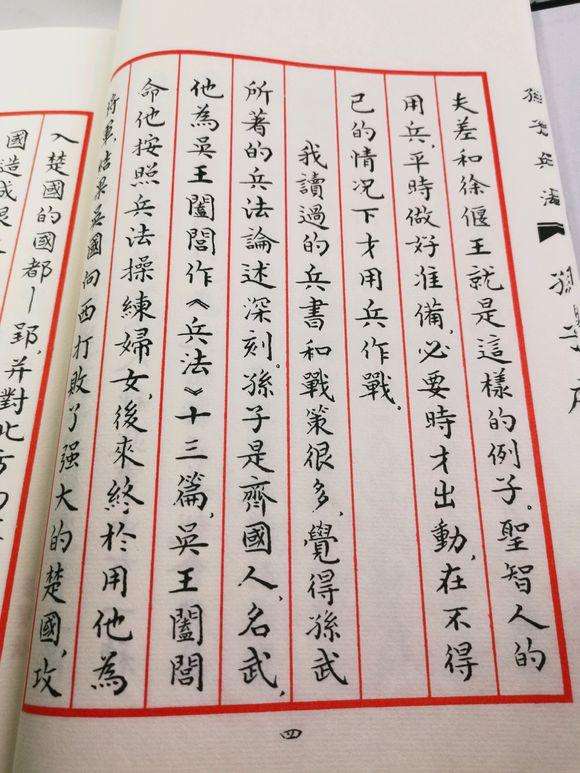 孫子兵法
夫差和徐偃王就是這樣的例子。聖智人的
用兵,平時做好准備,必要時才出動,在不得
已的情况下才用兵作戰。
我讀過的兵書和戰策很多,覺得孫武
所著的兵法論述深刻。孫子是齊國人,名武,
他為吳王闔閭作《兵法》十三篇,吳王闔閭
命他按照兵法操練婦女,後來終於用他為
将軍,结果吳國向西打敗了强大的楚國,攻
四
入楚國的國都—郢,并對北方的
國造成